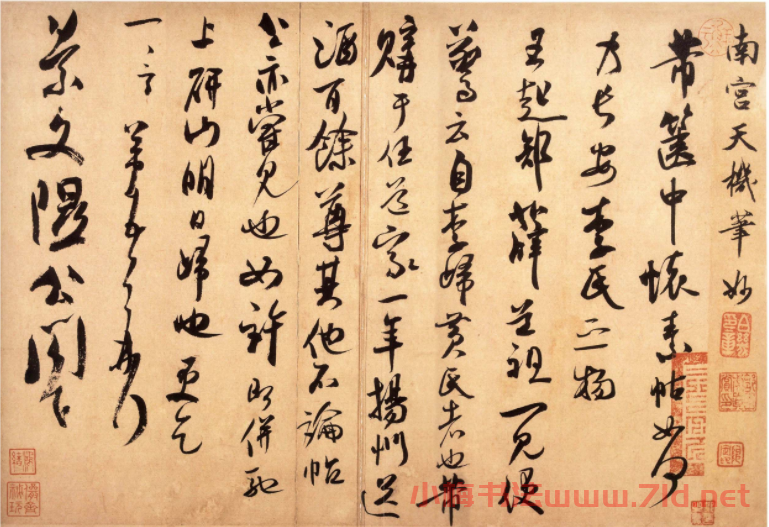 南宮天機筆妙
芾篋中懷素帖如何
乃長安李氏之物
王起部薛道祖一見便
驚云自李歸黃氏者也芾
購于任道家一年揚州送
酒百餘尊其他不論帖
公亦嘗見也如許即併馳
上研山明日歸也更乞
一言芾頓首再拜
景文隰公閣下
小梅书法www.7ld.net